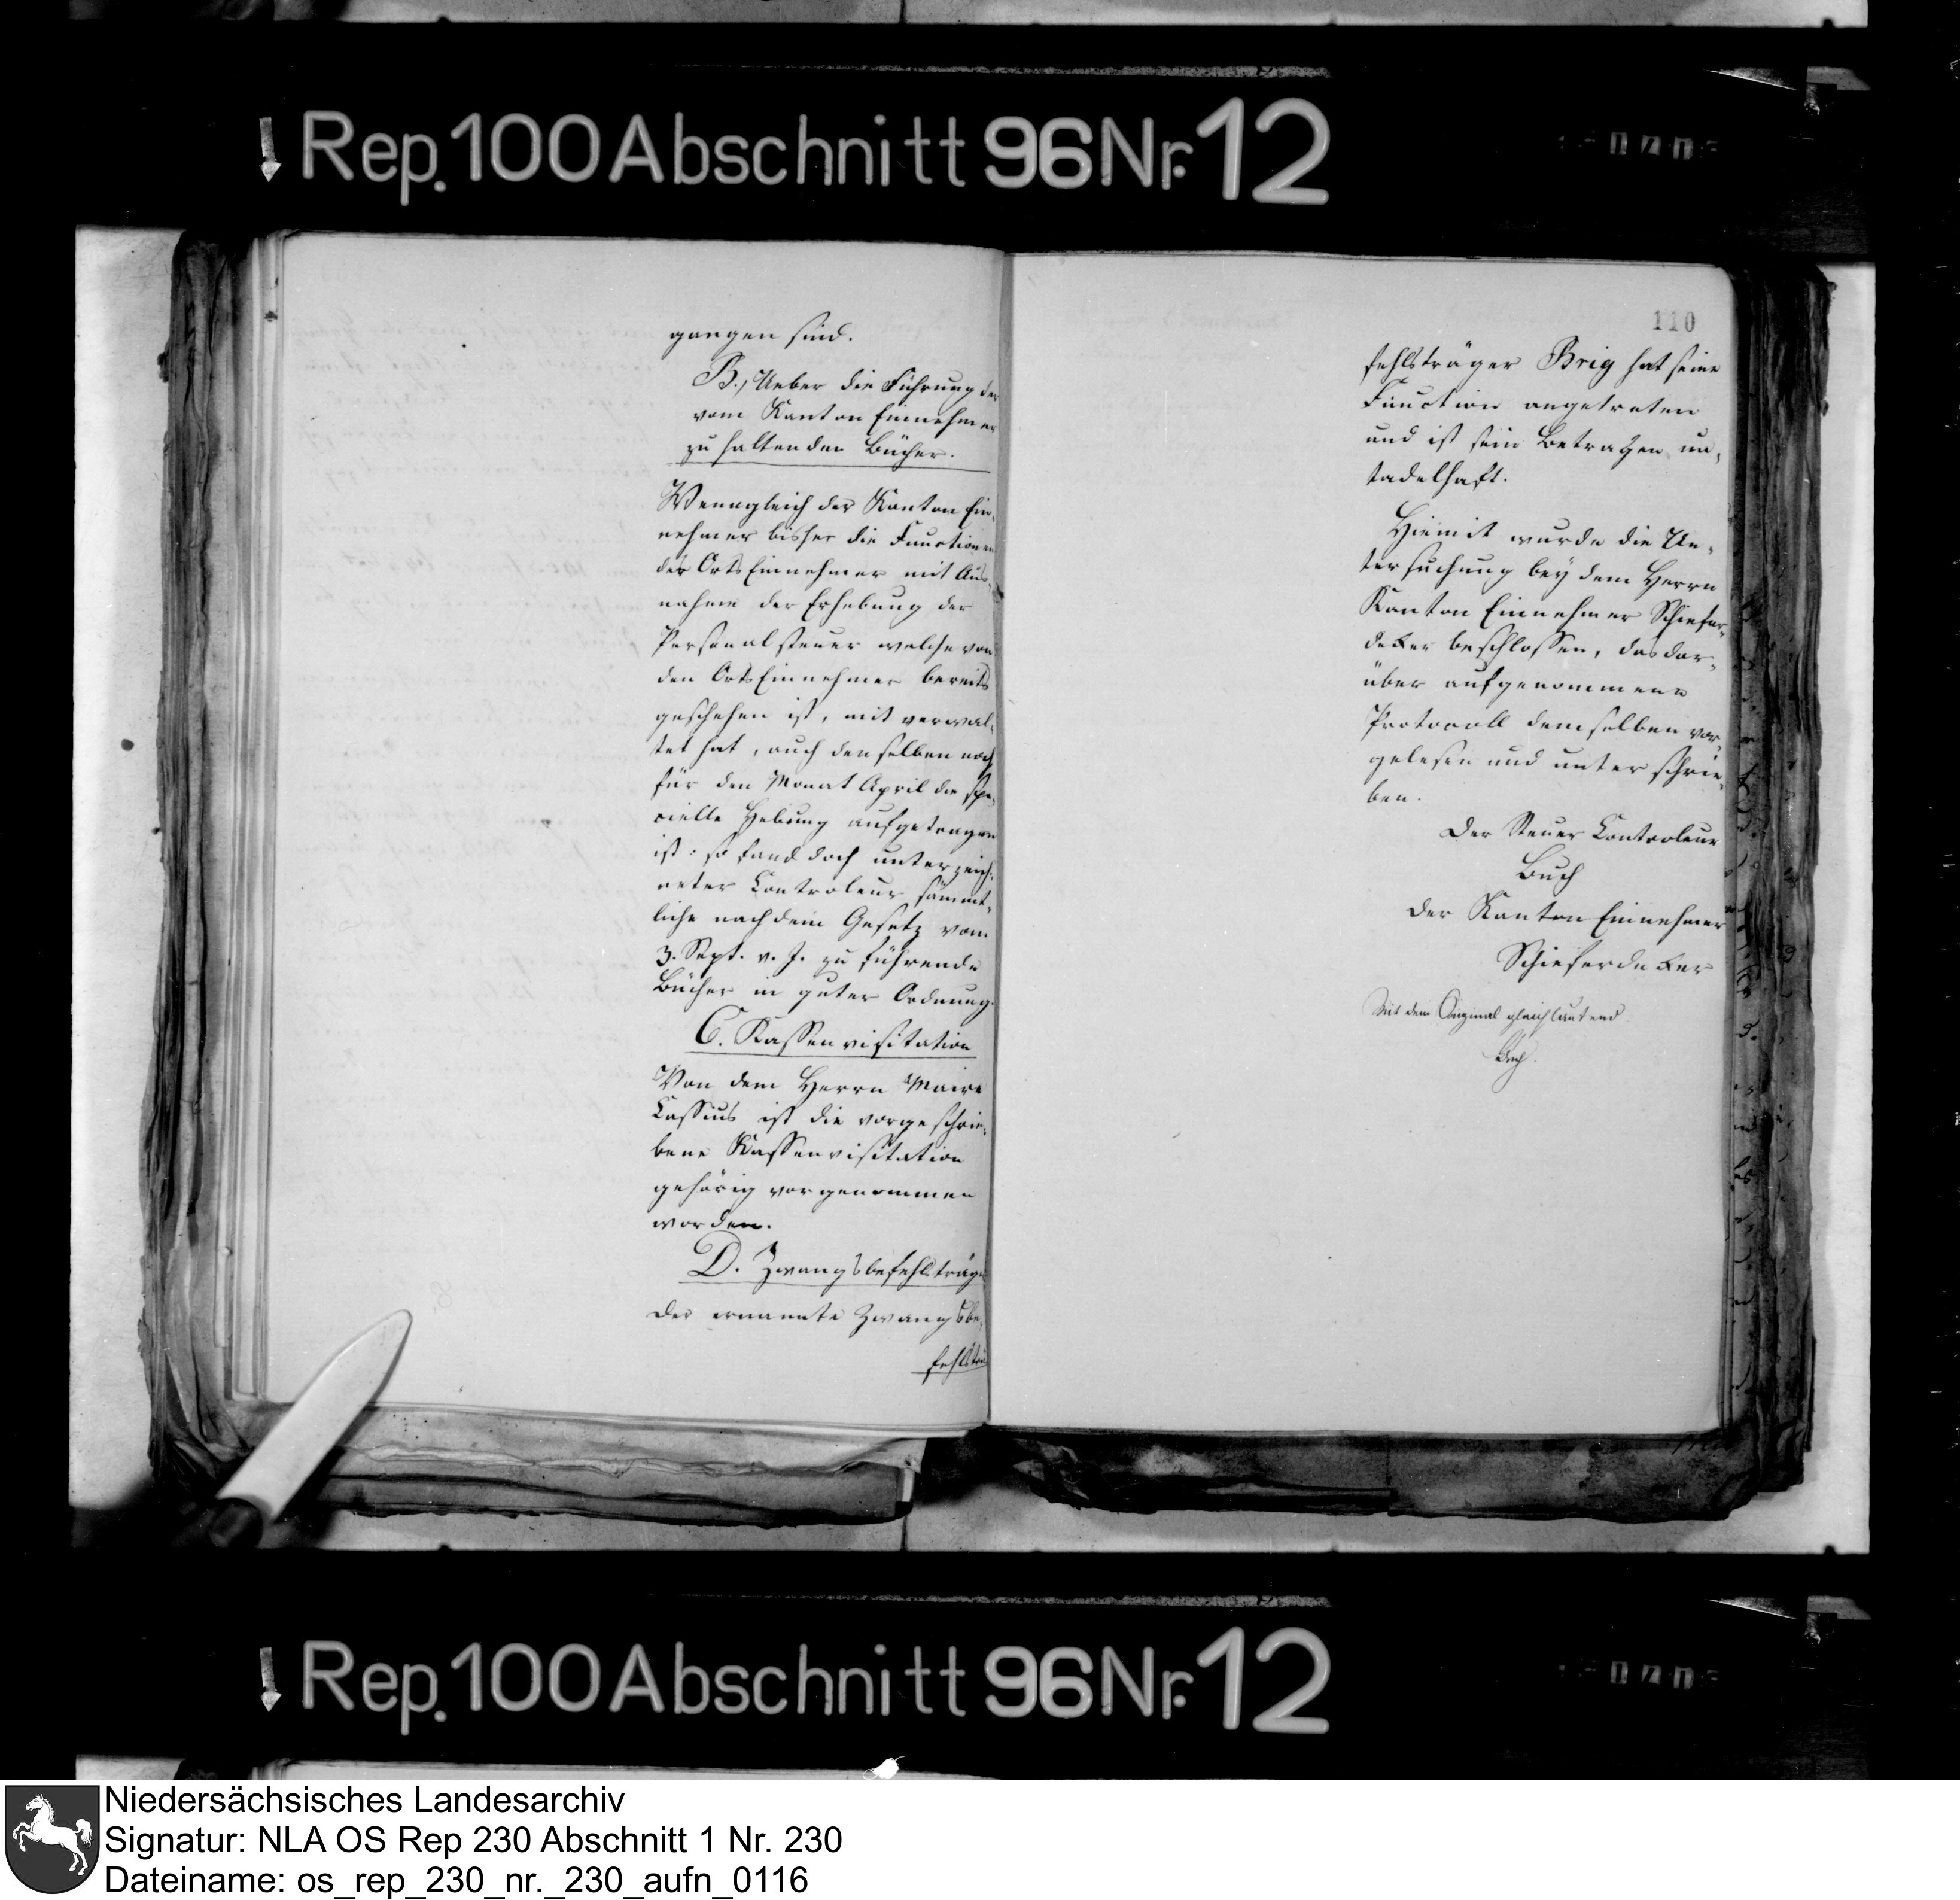 Rep. 100 Abschnitt 96 Nr. 12
gangen sind.
B., Ueber die Führung der
vom Kanton Einnehmer
zu haltenden Bücher.
Wenngleich der Kanton Ein-
nehmer bisher die Functionen
der Orts Einnehmer mit Aus-
nahme der Erhebung der
Personalsteuer welche von
den Orts Einnehmer bereits
geschehen ist, mit verwal-
tet hat, auch denselben noch
für den Monat April die spe-
cielle Hebung aufgetragen
ist: so fand doch unterzeich-
neter Controleur sämmt-
liche nach dem Gesetz vom
3. Sept. v. J. zu führende
Bücher in guter Ordnung.
C. Kassenvisitation
Von dem Herrn Maire
Cassius ist die vorgeschrie-
bene Kassenvisitation
gehörig vorgenommen
worden.
D. Zwangsbefehlsträger
Der ernannte Zwangsbe-
fehlsträ
110
fehlsträger Brig hat seine
Function angetreten
und ist sein Betragen un-
tadelhaft.
Hiemit wurde die Un-
tersuchung bey dem Herrn
Kanton Einnehmer Schiefer-
decker beschlossen, das dar-
über aufgenommene
Protocoll demselben vor-
gelesen und unterschrie-
ben.
Der Steuer Controleur
Buch
Der Kanton Einnehmer
Schieferdecker
Mit dem Original gleichlautend
Buch.
Rep. 100 Abschnitt 96 Nr. 12
Niedersächsisches Landesarchiv
Signatur: NLA OS Rep 230 Abschnitt 1 Nr. 230
Dateiname: os_rep_230_nr._230_aufn_0116